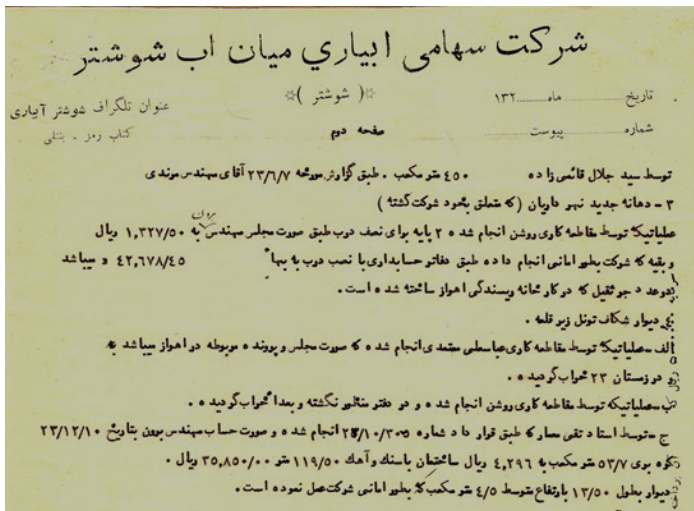 شرکت سهامی ابیاری میان اب شوشتر
( شوشتر )
تاریخ ............ ماه ........ ۱۳۲
عنوان تلگراف شوشتر آبیاری
شماره ............ پیوست ............
صفحه دوم
کتاب رمز - بنتلی
توسط سید جلال قائمی زاده ۴۵۰ متر مکعب . طبق گزارش مورخه ۲۳/۶/۷ آقای مهندس موندی
۳ - دهانه جدید نهر داریان ( که متعلق بخود شرکت گشته )
عملیاتیکه توسط مقاطعه کاری روشن انجام شده ۲ پایه برای نصف درب طبق صورت مجلس مهندس برون به ۱,۳۲۷/۵۰ ریال
و بقیه که شرکت بطور امانی انجام داده طبق دفاتر حسابداری با نصب درب به بهاء ۴۲,۶۷۸/۴۵ و میباشد
بدوعد د جرثقیل که در کارخانه ریسندگی اهواز ساخته شده است .
دیوار شکاف تونل زیر قلعه .
الف - عملیاتیکه توسط مقاطعه کاری عباسعلی معتمدی انجام شده که صورت مجلس و پرونده مربوطه در اهواز میباشد به
در زمستان ۲۳ خراب گردیده .
ب - عملیاتیکه توسط مقاطعه کاری روشن انجام شده و در دفتر منظور نگشته و بعداً خراب گردیده .
ج - توسط استاد تقی معمار که طبق قرار داد شماره انجام شده و صورت حساب مهندس برون بتاریخ ۲۳/۱۲/۱۰
بری ۵۳/۷ متر مکعب به ۴,۲۹۶ ریال ساختمان باسنگ و آهک ۱۱۹/۵۰ متر ۳۵,۸۵۰/۰۰ ریال .
دیوار بطول ۱۳/۵۰ بارتفاع متوسط ۴/۵ متر مکعب که بطور امانی شرکت عمل نموده است .